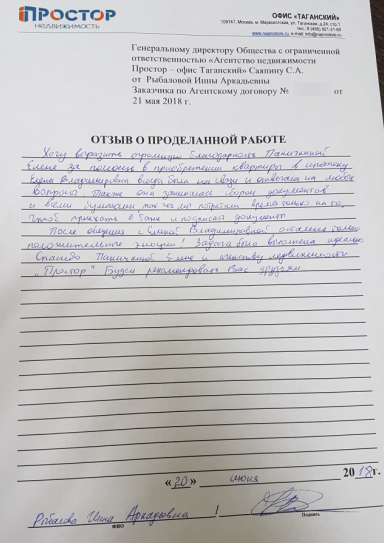 ПРОСТОР
НЕДВИЖИМОСТЬ
ОФИС «ТАГАНСКИЙ»
109147, Москва, м. Марксистская, ул. Таганская, д.24, стр.1
Генеральному директору Общества с ограниченной
ответственностью «Агентство недвижимости
Простор – офис Таганский» Саяпину С.А.
от Рыбаловой Инны Аркальевны
Заказчика по Агентскому договору № от
21 мая 2018 г.
ОТЗЫВ О ПРОДЕЛАННОЙ РАБОТЕ
Хочу выразить громадную благодарность Паничкиной
Елене за помощь в приобретении квартиры в ипотеку
Елена Владимировна всегда была на связи и отвечала на любые
вопросы. Также она занималась сбором документов
и всеми бумагами так что мы потратили время только на то,
чтоб приехать в банк и подписать документы
После общения с Еленой Владимировной остались только
положительные эмоции! Задача была выполнена идеально
Спасибо Паничкиной Елене и агентству недвижимости
"Простор" Будем рекомендовать Вас друзьям
«20» июня 2018г.
Рыбалова Инна Аркадьевна /
ФИО Подпись